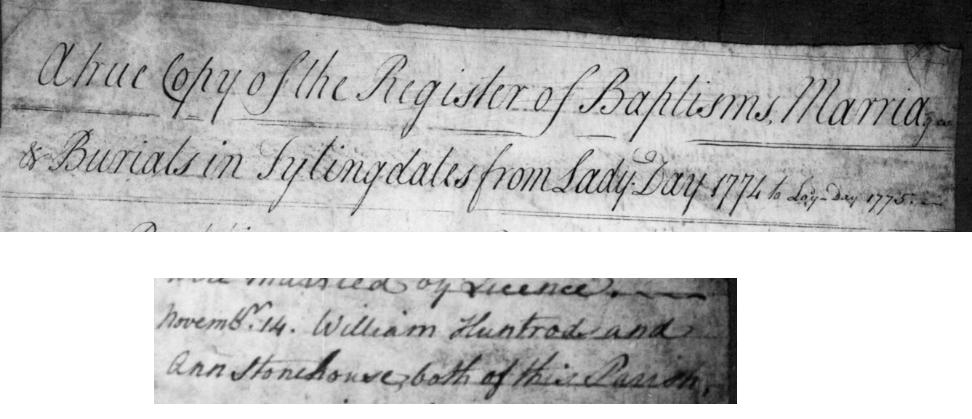 A true Copy of the Register of Baptisms, Marriages
& Burials in Fylingdales from Lady-Day 1774 to Lay-Day 1775.
were Married by Licence.
Novembr. 14. William Huntrod and
Ann Stonehouse, both of this Parish,